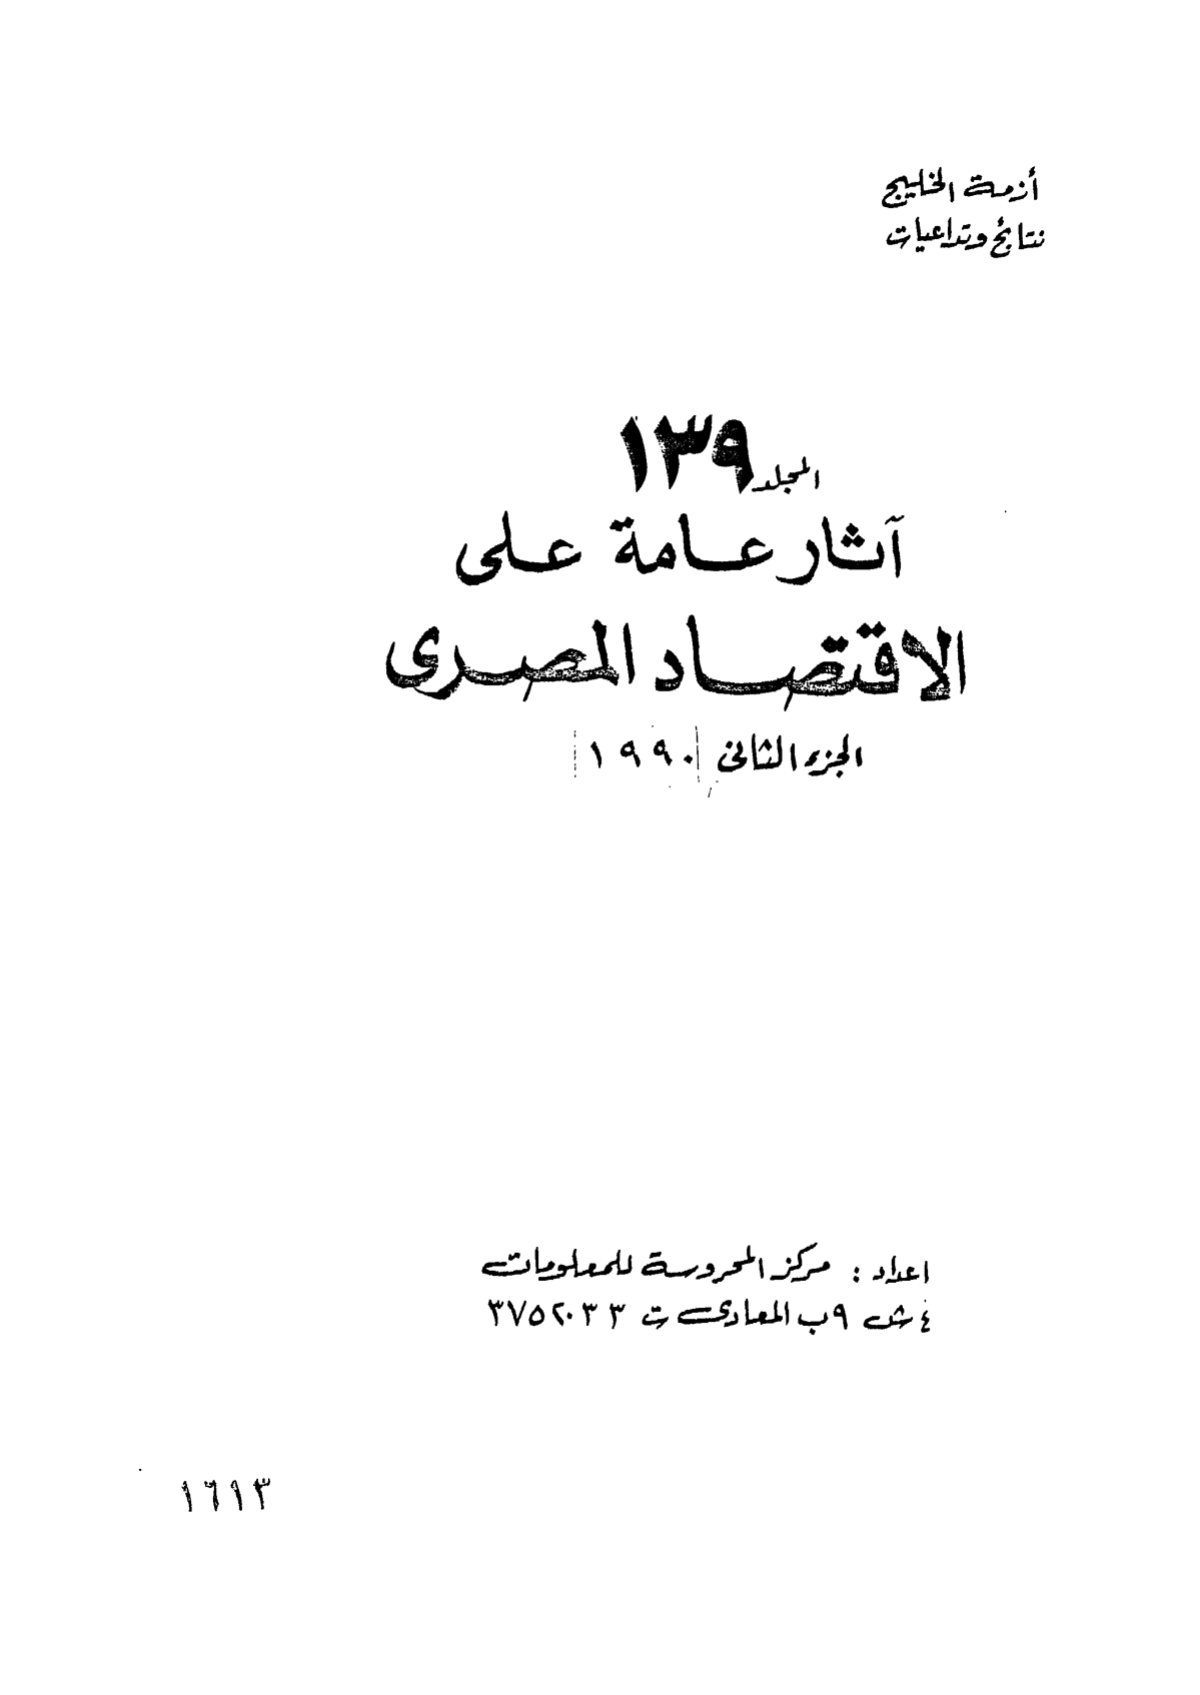 أزمة الخليج
نتائج وتداعيات
المجلد ١٣٩
آثار عامة على
الاقتصاد المصرى
الجزء الثانى ١٩٩٠
اعداد : مركز المحروسة للمعلومات
٤ ش ٩ب المعادى ت ٣٧٥٢٠٣٣
١٦١٣